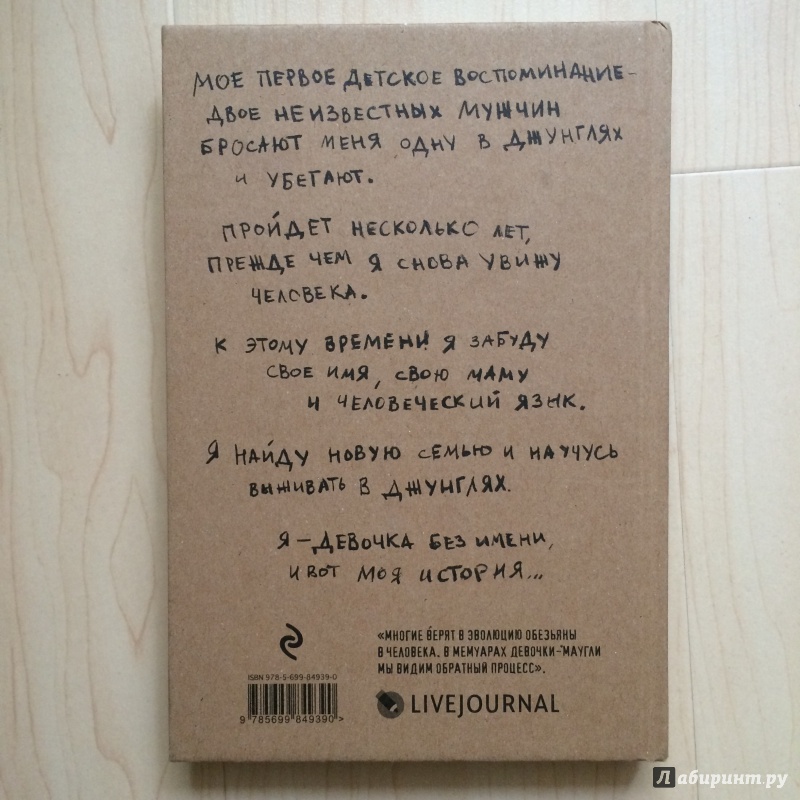 МОЕ ПЕРВОЕ ДЕТСКОЕ ВОСПОМИНАНИЕ –
ДВОЕ НЕИЗВЕСТНЫХ МУЖЧИН
БРОСАЮТ МЕНЯ ОДНУ В ДЖУНГЛЯХ
И УБЕГАЮТ.
ПРОЙДЕТ НЕСКОЛЬКО ЛЕТ,
ПРЕЖДЕ ЧЕМ Я СНОВА УВИЖУ
ЧЕЛОВЕКА.
К ЭТОМУ ВРЕМЕНИ Я ЗАБУДУ
СВОЕ ИМЯ, СВОЮ МАМУ
И ЧЕЛОВЕЧЕСКИЙ ЯЗЫК.
Я НАЙДУ НОВУЮ СЕМЬЮ И НАУЧУСЬ
ВЫЖИВАТЬ В ДЖУНГЛЯХ.
Я – ДЕВОЧКА БЕЗ ИМЕНИ,
И ВОТ МОЯ ИСТОРИЯ...
«МНОГИЕ ВЕРЯТ В ЭВОЛЮЦИЮ ОБЕЗЬЯНЫ
В ЧЕЛОВЕКА. В МЕМУАРАХ ДЕВОЧКИ-МАУГЛИ
МЫ ВИДИМ ОБРАТНЫЙ ПРОЦЕСС».
LIVEJOURNAL
ISBN 978-5-699-84939-0
9 785699 849390>
Лабиринт.ру